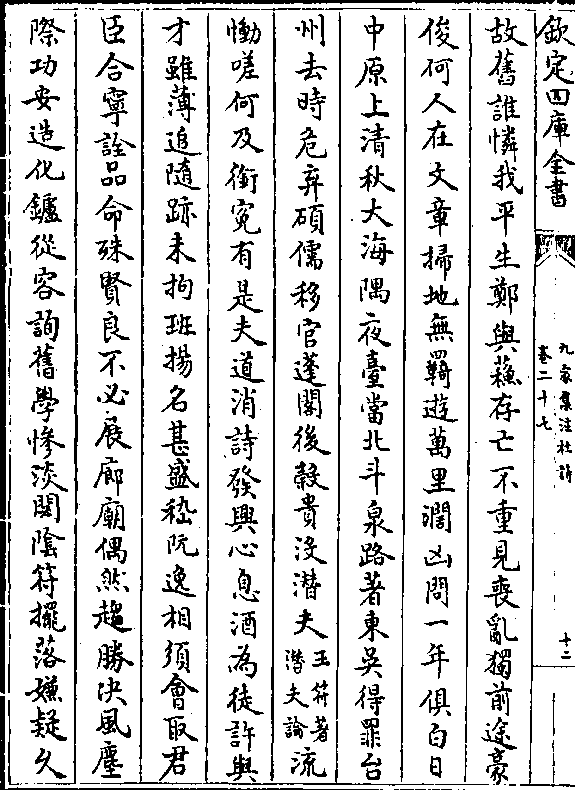 欽定四庫全書
九家集注杜詩
卷二十七
十二
故舊誰憐我平生鄭與蘓存亡不重見喪亂獨前途豪
俊何人在文章掃地無羇遊萬里濶凶問一年俱白日
中原上清秋大海隅夜臺當北斗泉路著東吳得罪台
州去時危弃碩儒移官蓬閣後糓貴没潛夫王符著潛夫論流
慟嗟何及銜寃有是夫道消詩發興心息酒為徒許與
才雖薄追隨跡未拘班揚名甚盛嵇阮逸相須會取君
臣合寧詮品命殊賢良不必展廊廟偶然趨勝决風塵
際功安造化鑪從容詢舊學慘淡閟陰符擺落嫌疑久